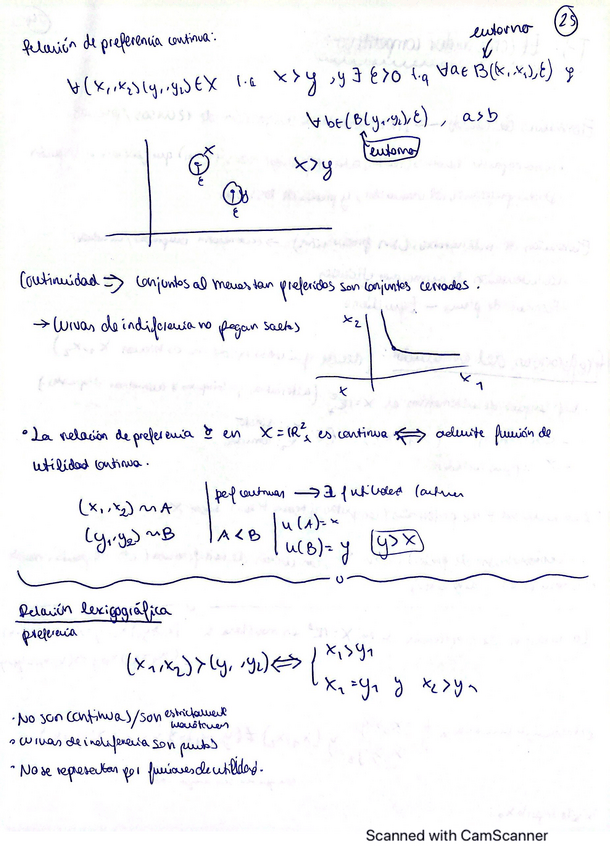 25
entorno
Relación de preferencia continua:
∀(x₁,x₂)(y₁,y₂)∈X t.q x>y, y ∃ ε>0 t.q ∀a∈ B((x₁,x₂),ε) y
∀b∈(B(y₁,y₂),ε), a>b
entorno
x
x>y
ε
y
ε
Continuidad => conjuntos al menos tan preferidos son conjuntos cerrados.
→ curvas de indiferencia no pegan saltos
x₂
x
x₁
• La relación de preferencia ≥ en X=ℝ² es continua ⟺ admite función de
utilidad continua.
(x₁,x₂) ~ A
(y₁,y₂) ~ B
pref continuas → ∃ f utilidad continua
A < B
u(A)=x
u(B)=y
y>x
Relación lexicográfica
preferencia
(x₁,x₂)>(y₁,y₂) ⟺ { x₁>y₁
x₁=y₁ y x₂>y₂
· No son continuas/son estrictamente monótonas
• curvas de indiferencia son puntos
• No se representan por funciones de utilidad.
Scanned with CamScanner